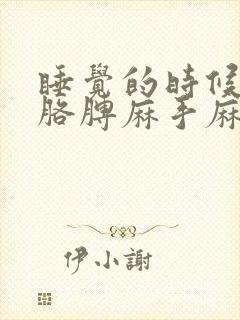 睡覺的時候
胳脾麻手麻
伊小謝